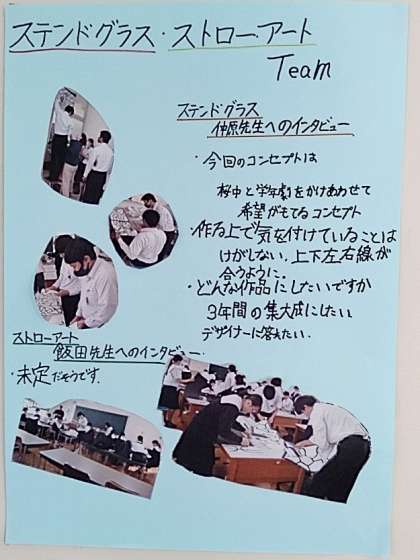 ステンドグラス・ストローアート
Team
ステンドグラス
仲原先生へのインタビュー
・今回のコンセプトは
桜中と学年劇をかけあわせて
希望がもてるコンセプト
・作る上で気を付けていることは
けがしない。上下左右線が
合うように。
・どんな作品にしたいですか
3年間の集大成にしたい
デザイナーに答えたい。
ストローアート
飯田先生へのインタビュー
・未定だそうです。